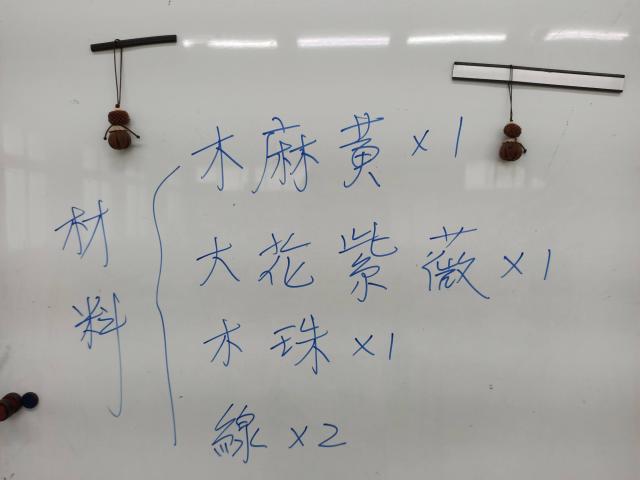 材料
木麻黃x1
大花紫薇x1
木珠x1
線x2